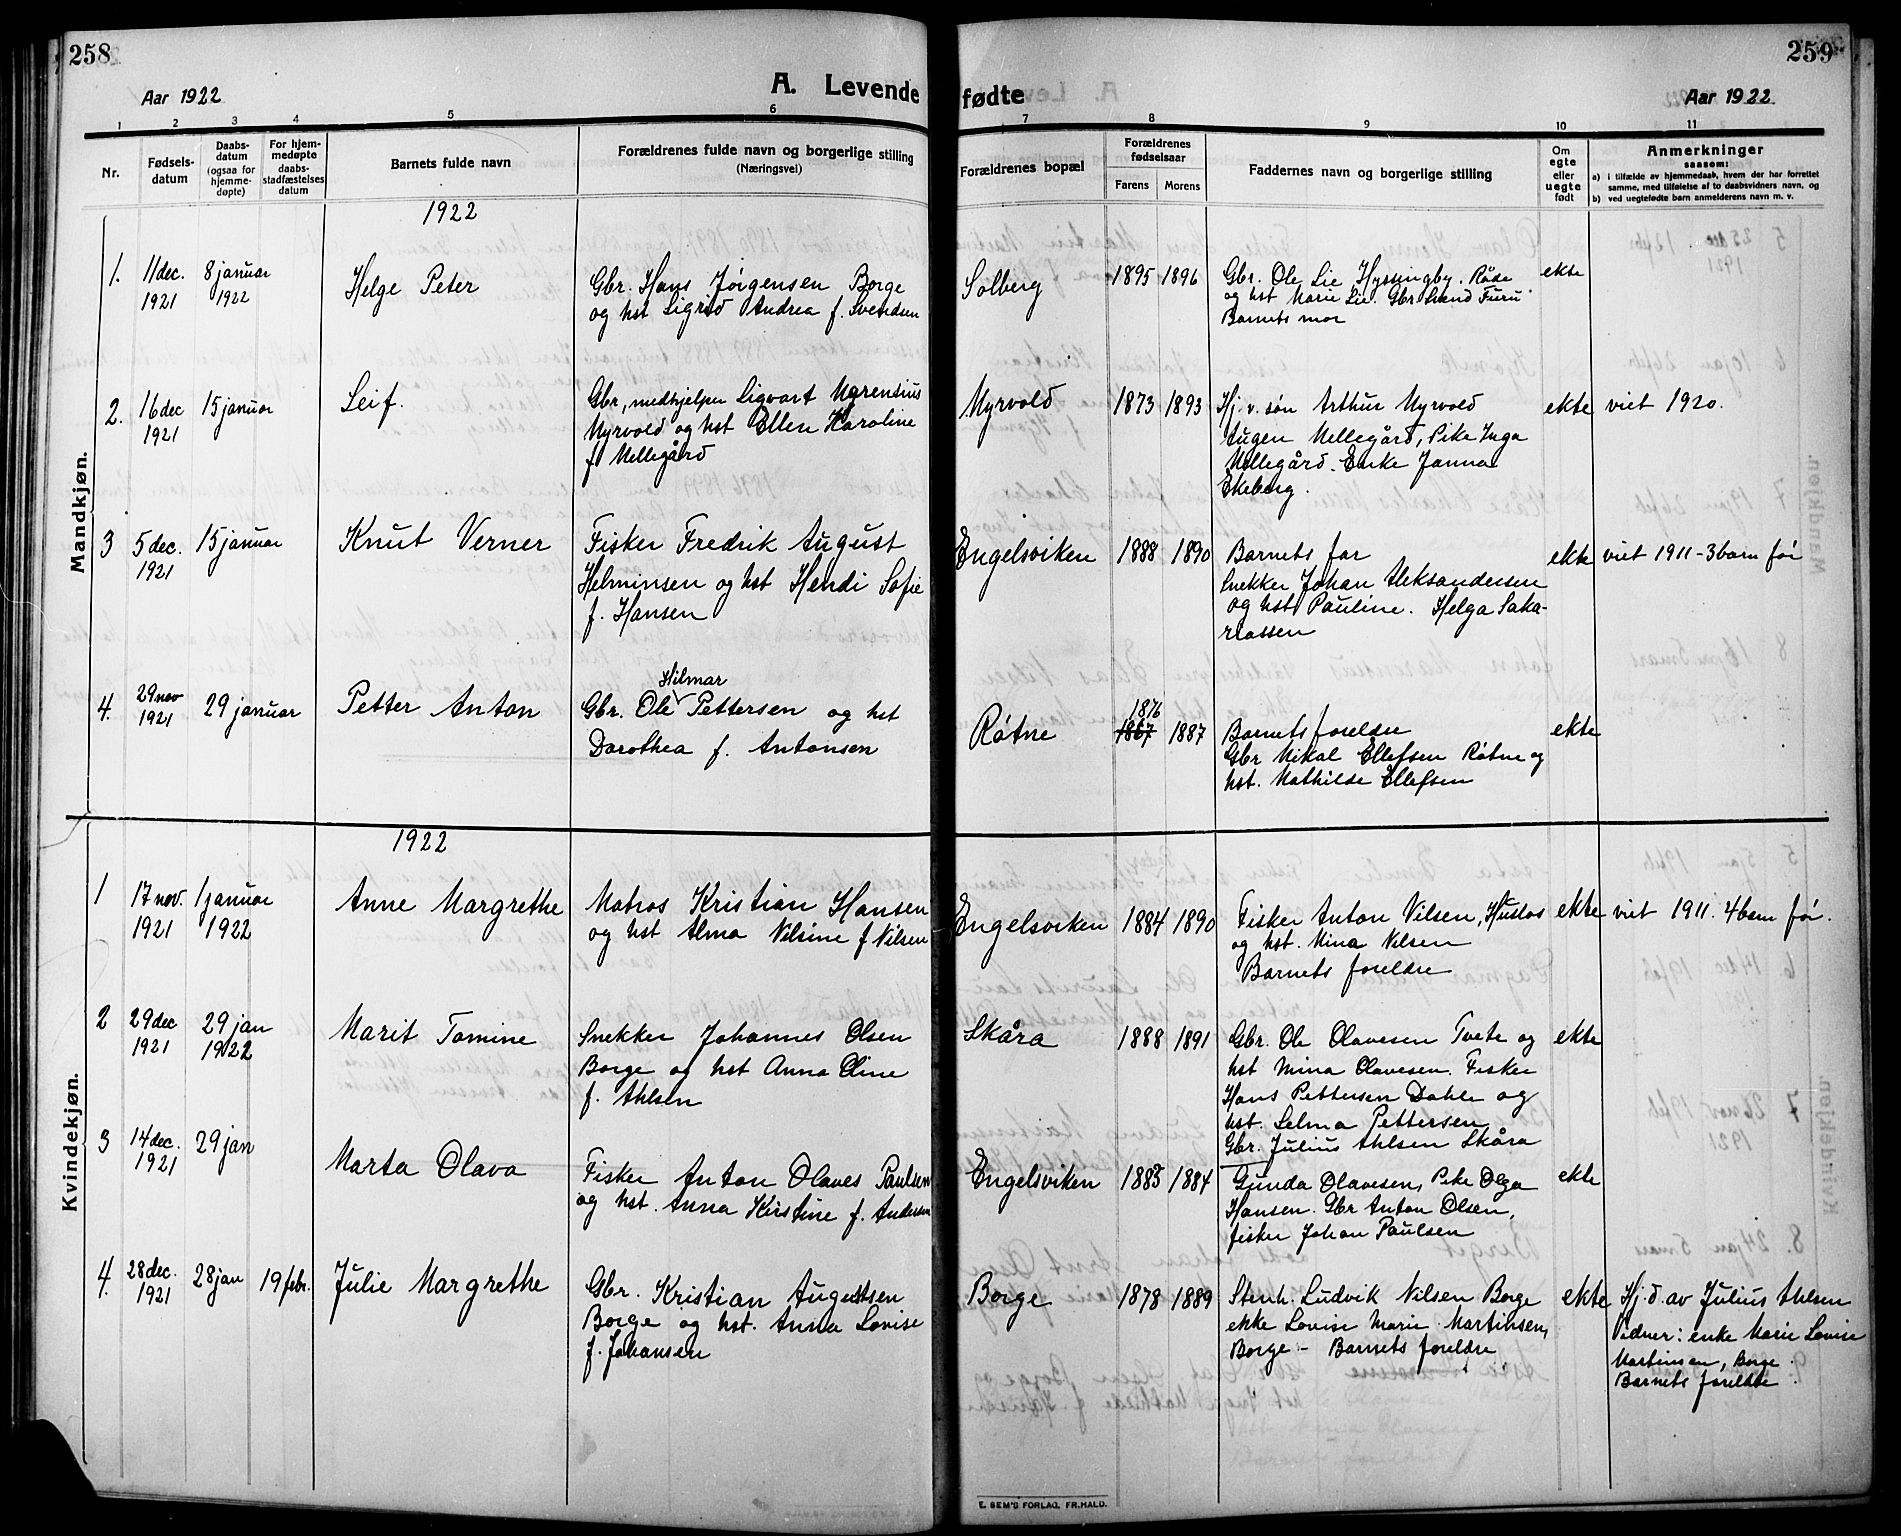 258
259
Aar 1922
A. Levende
fødte
Aar 1922
1 2 3 4 5 6 7 8 9 10 11
Nr.
Fødsels-
datum
Daabs-
datum
(ogsaa for
hjemme-
døpte)
For hjem-
medøpte
daabs-
stadfæstelses
datum
Barnets fulde navn
Forældrenes fulde navn og borgerlige stilling
(Næringsvei)
Forældrenes bopæl
Forældrenes
fødselsaar
Farens
Morens
Faddernes navn og borgerlige stilling
Om
egte
eller
uegte
født
Anmerkninger
saasom:
a) i tilfælde av hjemmedaab, hvem der har forrettet
samme, med tilføielse af to daabsvidners navn, og
b) ved uegtefødte barn anmelderens navn m. v.
Mandkjøn.
1922
1.
11 dec.
1921
8 januar
1922
Helge Peter
Gbr. Hans Jørgensen Borge
og hst Sigrid Andrea f. Svendsen
Solberg
1895 1896
Gbr. Ole Lie Hyssingby. Råde
og hst Marie Lie. Gbr. Svend Furu
Barnets mor
ekte
2.
16 dec
1921
15 januar
Leif.
Gbr, medhjelper Sigvart Marensius
Myrvold og hst Ellen Karoline
f Mellegård
Myrvold
1873 1893
Hj. v. søn Arthur Myrvold
Augen Mellegård, Pike Inga
Mellegård. Enke Janna
Ekeberg.
ekte
viet 1920.
3
5 dec.
1921
15 januar
Knut Verner
Fisker Fredrik August
Helminsen og hst Hendi Sofie
f. Hansen
Engelsviken
1888 1890
Barnets far
Snekker Johan Aleksandersen
og hst Pauline. Helga Saka-
riassen
ekte
viet 1911 - 3 barn før
4.
29 nov
1921
29 januar
Petter Anton
Hilmar
Gbr. Ole Pettersen og hst
Dorothea f. Antonsen
Råtne
1876
1867 1887
Barnets foreldre
Gbr Mikal Ellefsen Råtne og
hst. Mathilde Ellefsen
ekte
Kvindekjøn.
1922
1
17 nov.
1921
1 januar
1922
Anne Margrethe
Matros Kristian Hansen
og hst Alma Nilsine f Nilsen
Engelsviken
1884 1890
Fisker Anton Nilsen, Huslos
og hst. Mina Nilsen
Barnets foreldre
ekte
viet 1911. 4 barn før.
2
29 dec
1921
29 jan
1922
Marit Tomine
Snekker Johannes Olsen
Borge og hst Anna Oline
f. Ahlsen
Skåra
1888 1891
Gbr. Ole Olavesen Tvete og
hst Mina Olavesen. Fisker
Hans Pettersen Dahle og
hst. Selma Pettersen
Gbr. Julius Ahlsen Skåra
ekte
3
14 dec.
1921
29 jan
Marta Olava
Fisker Anton Olaves Paulsen
og hst. Anna Kirstine f. Andersen
Engelsviken
1885 1884
Gunda Olavesen, Pike Olga
Hansen. Gbr Anton Olsen,
fisker Johan Paulsen
ekte
4.
28 dec.
1921
28 jan
19 febr.
Julie Margrethe
Gbr. Kristian Augustsen
Borge og hst. Anna Lovise
f. Johansen
Borge
1878 1889
Stenh. Ludvik Nilsen Borge
ekke Lovise Marie Martinsen,
Borge - Barnets foreldre
ekte
Hj. d. av Julius Ahlsen
vidner: enke Marie Lovise
Martinsen, Borge.
Barnets foreldre
E. SEM'S FORLAG, FR.HALD.